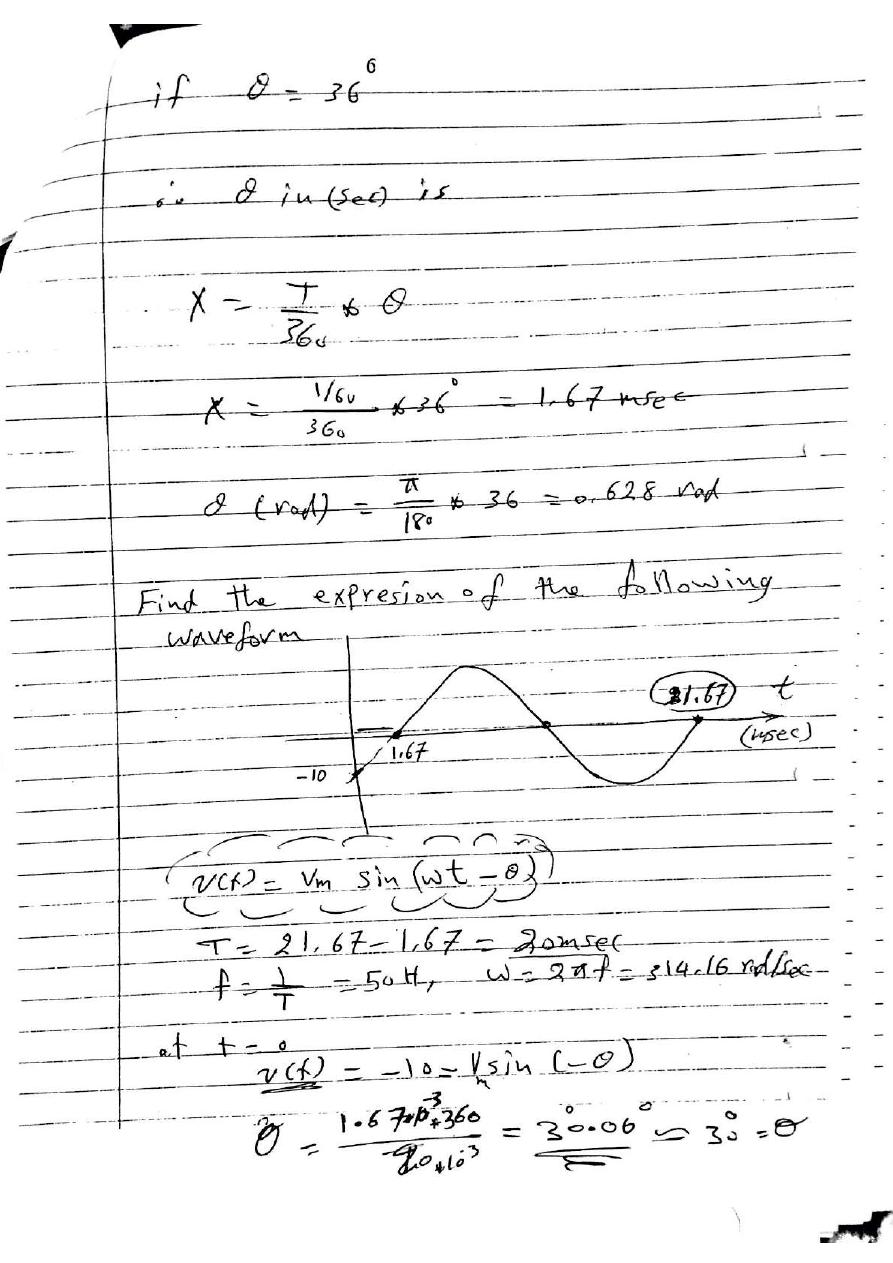 6
if θ = 36°
∴ θ in (sec) is
X = T/360 * θ
X = 1/60 / 360 * 36° = 1.67 msec
θ (rad) = π/180 * 36 = 0.628 rad
Find the expresion of the following
waveform
21.67 t
(msec)
1.67
-10
v(t) = Vm sin (wt - θ)
T = 21.67 - 1.67 = 20msec
f = 1/T = 50 H, w = 2πf = 314.16 rad/sec
at t = 0
v(t) = -10 = Vm sin (-θ)
θ = 1.67*10⁻³*360 / 20*10⁻³ = 30.06° ≃ 30° = θ